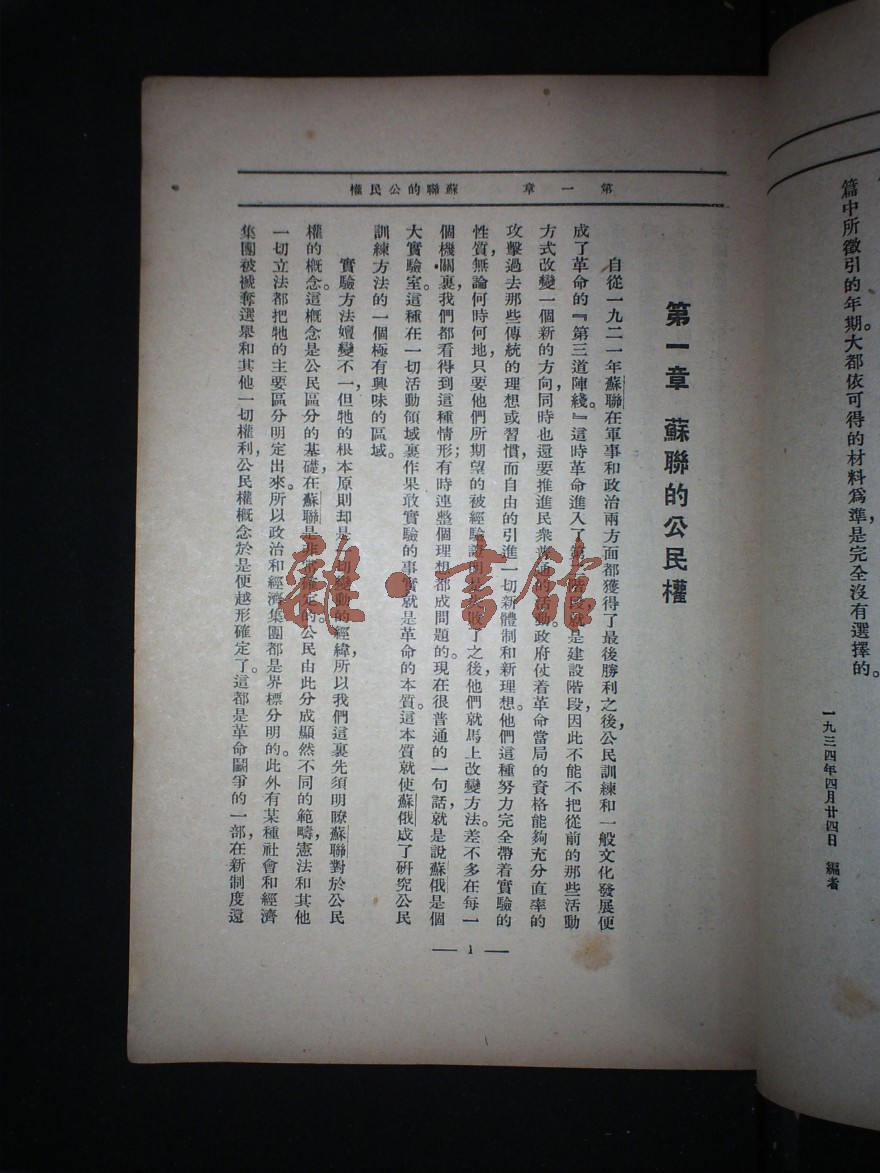 篇中所徵引的年期。大都依可得的材料爲準，是完全沒有選擇的。
一九三四年四月廿四日　編者
第一章　蘇聯的公民權
第一章　蘇聯的公民權
自從一九二一年蘇聯在軍事和政治兩方面都獲得了最後勝利之後，公民訓練和一般文化發展便
成了革命的『第三道陣綫。』這時革命進入了第二階段，就是建設階段，因此不能不把從前的那些活動
方式改變一個新的方向，同時也還要推進民衆普通的活動。政府仗着革命當局的資格能夠充分直率的
攻擊過去那些傳統的理想或習慣，而自由的引進一切新體制和新理想。他們這種努力完全帶着實驗的
性質，無論何時何地，只要他們所期望的被經驗證明是失敗了之後，他們就馬上改變方法。差不多在每一
個機關裏，我們都看得到這種情形；有時連整個理想都成問題的。現在很普通的一句話，就是說蘇俄是個
大實驗室。這種在一切活動領域裏作果敢實驗的事實就是革命的本質。這本質就使蘇俄成了研究公民
訓練方法的一個極有興味的區域。
實驗方法嬗變不一，但牠的根本原則却是一切變動的經緯，所以我們這裏先須明瞭蘇聯對於公民
權的概念。這概念是公民區分的基礎，在蘇聯是非常確定的。公民由此分成顯然不同的範疇，憲法和其他
一切立法都把牠的主要區分明定出來。所以政治和經濟集團都是界標分明的。此外有某種社會和經濟
集團被褫奪選舉和其他一切權利，公民權概念於是便越形確定了。這都是革命鬭爭的一部，在新制度還
— 1 —
雜·書館